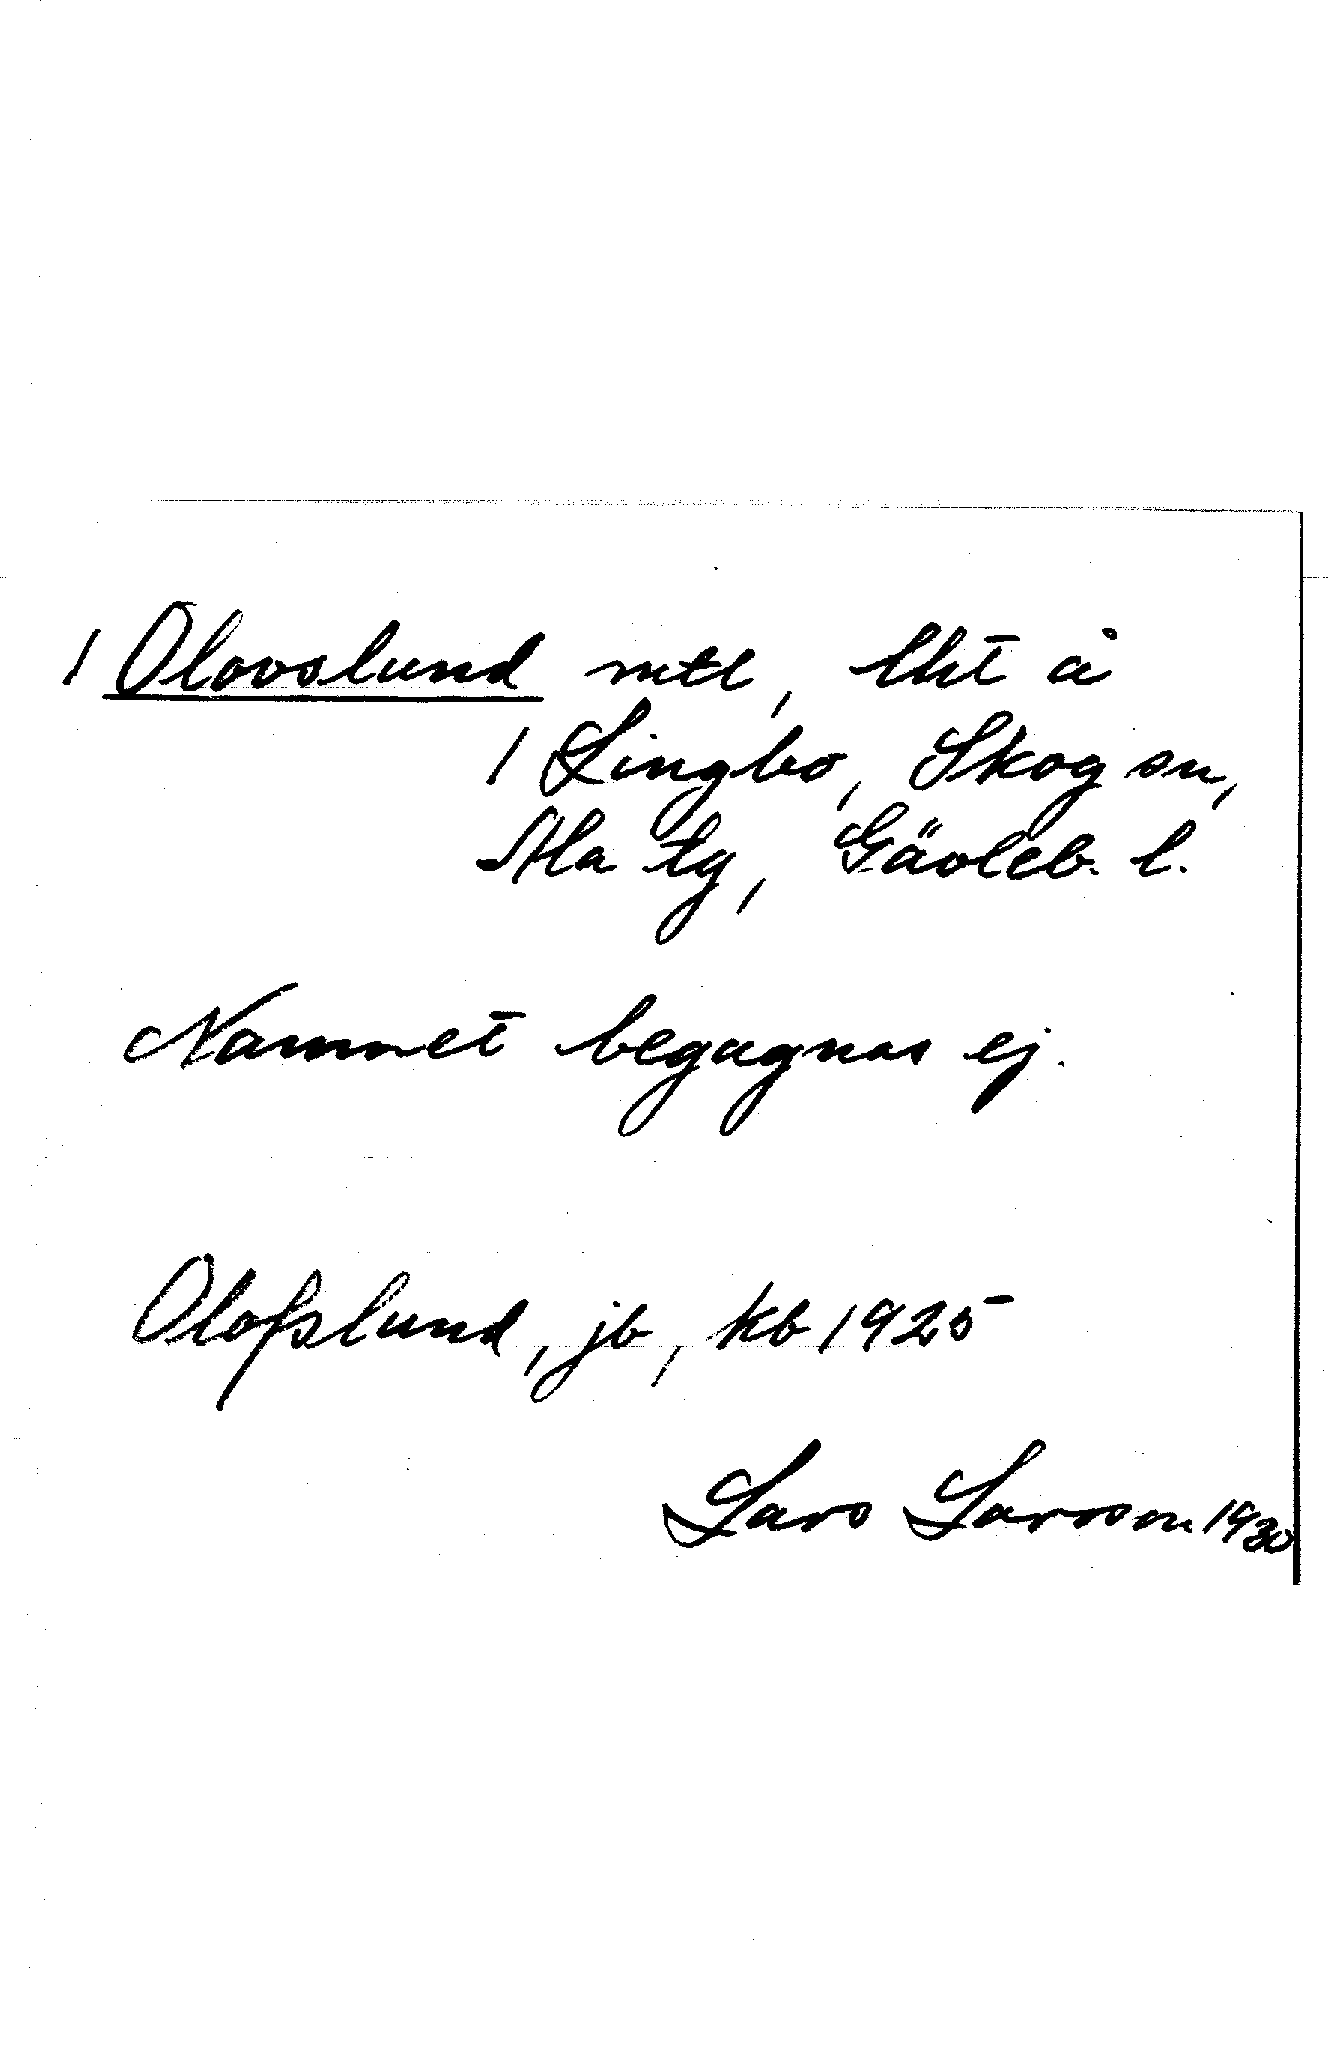 / Olovslund mtl, lht å
/ Lingbo, Skog sn,
Ala tg, Gävleb. l.
Namnet begagnas ej.
Olofslund, jb, kb 1925
Lars Larsson 1930